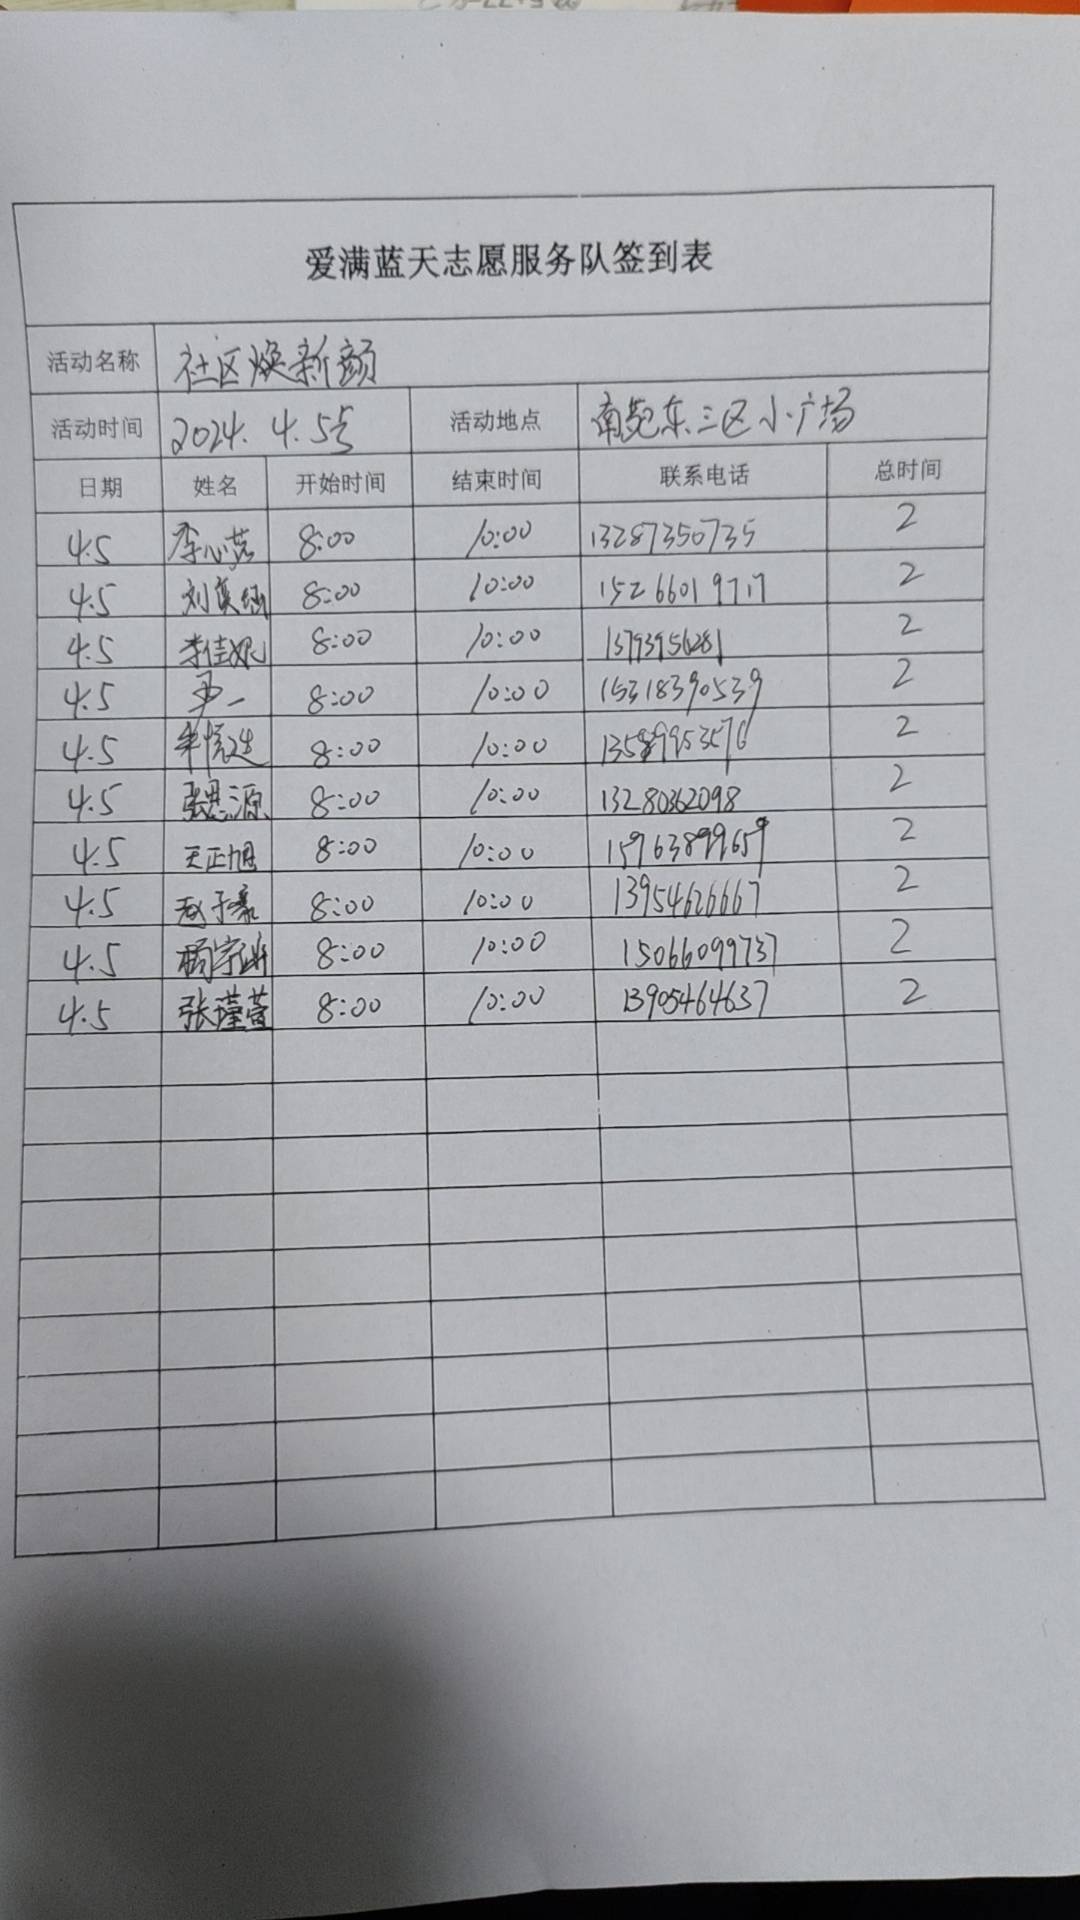 爱满蓝天志愿服务队签到表
活动名称 社区焕新颜
活动时间 2024.4.5号 活动地点 南苑东三区小广场
日期 姓名 开始时间 结束时间 联系电话 总时间
4.5 李心蕊 8:00 10:00 13287350735 2
4.5 刘奕涵 8:00 10:00 15266019717 2
4.5 李佳妮 8:00 10:00 13793956281 2
4.5 8:00 10:00 15318390539 2
4.5 8:00 10:00 2
4.5 张思源 8:00 10:00 13280362098 2
4.5 王正旭 8:00 10:00 15963899659 2
4.5 赵子豪 8:00 10:00 13954626667 2
4.5 8:00 10:00 15066099737 2
4.5 张瑾萱 8:00 10:00 13905464637 2